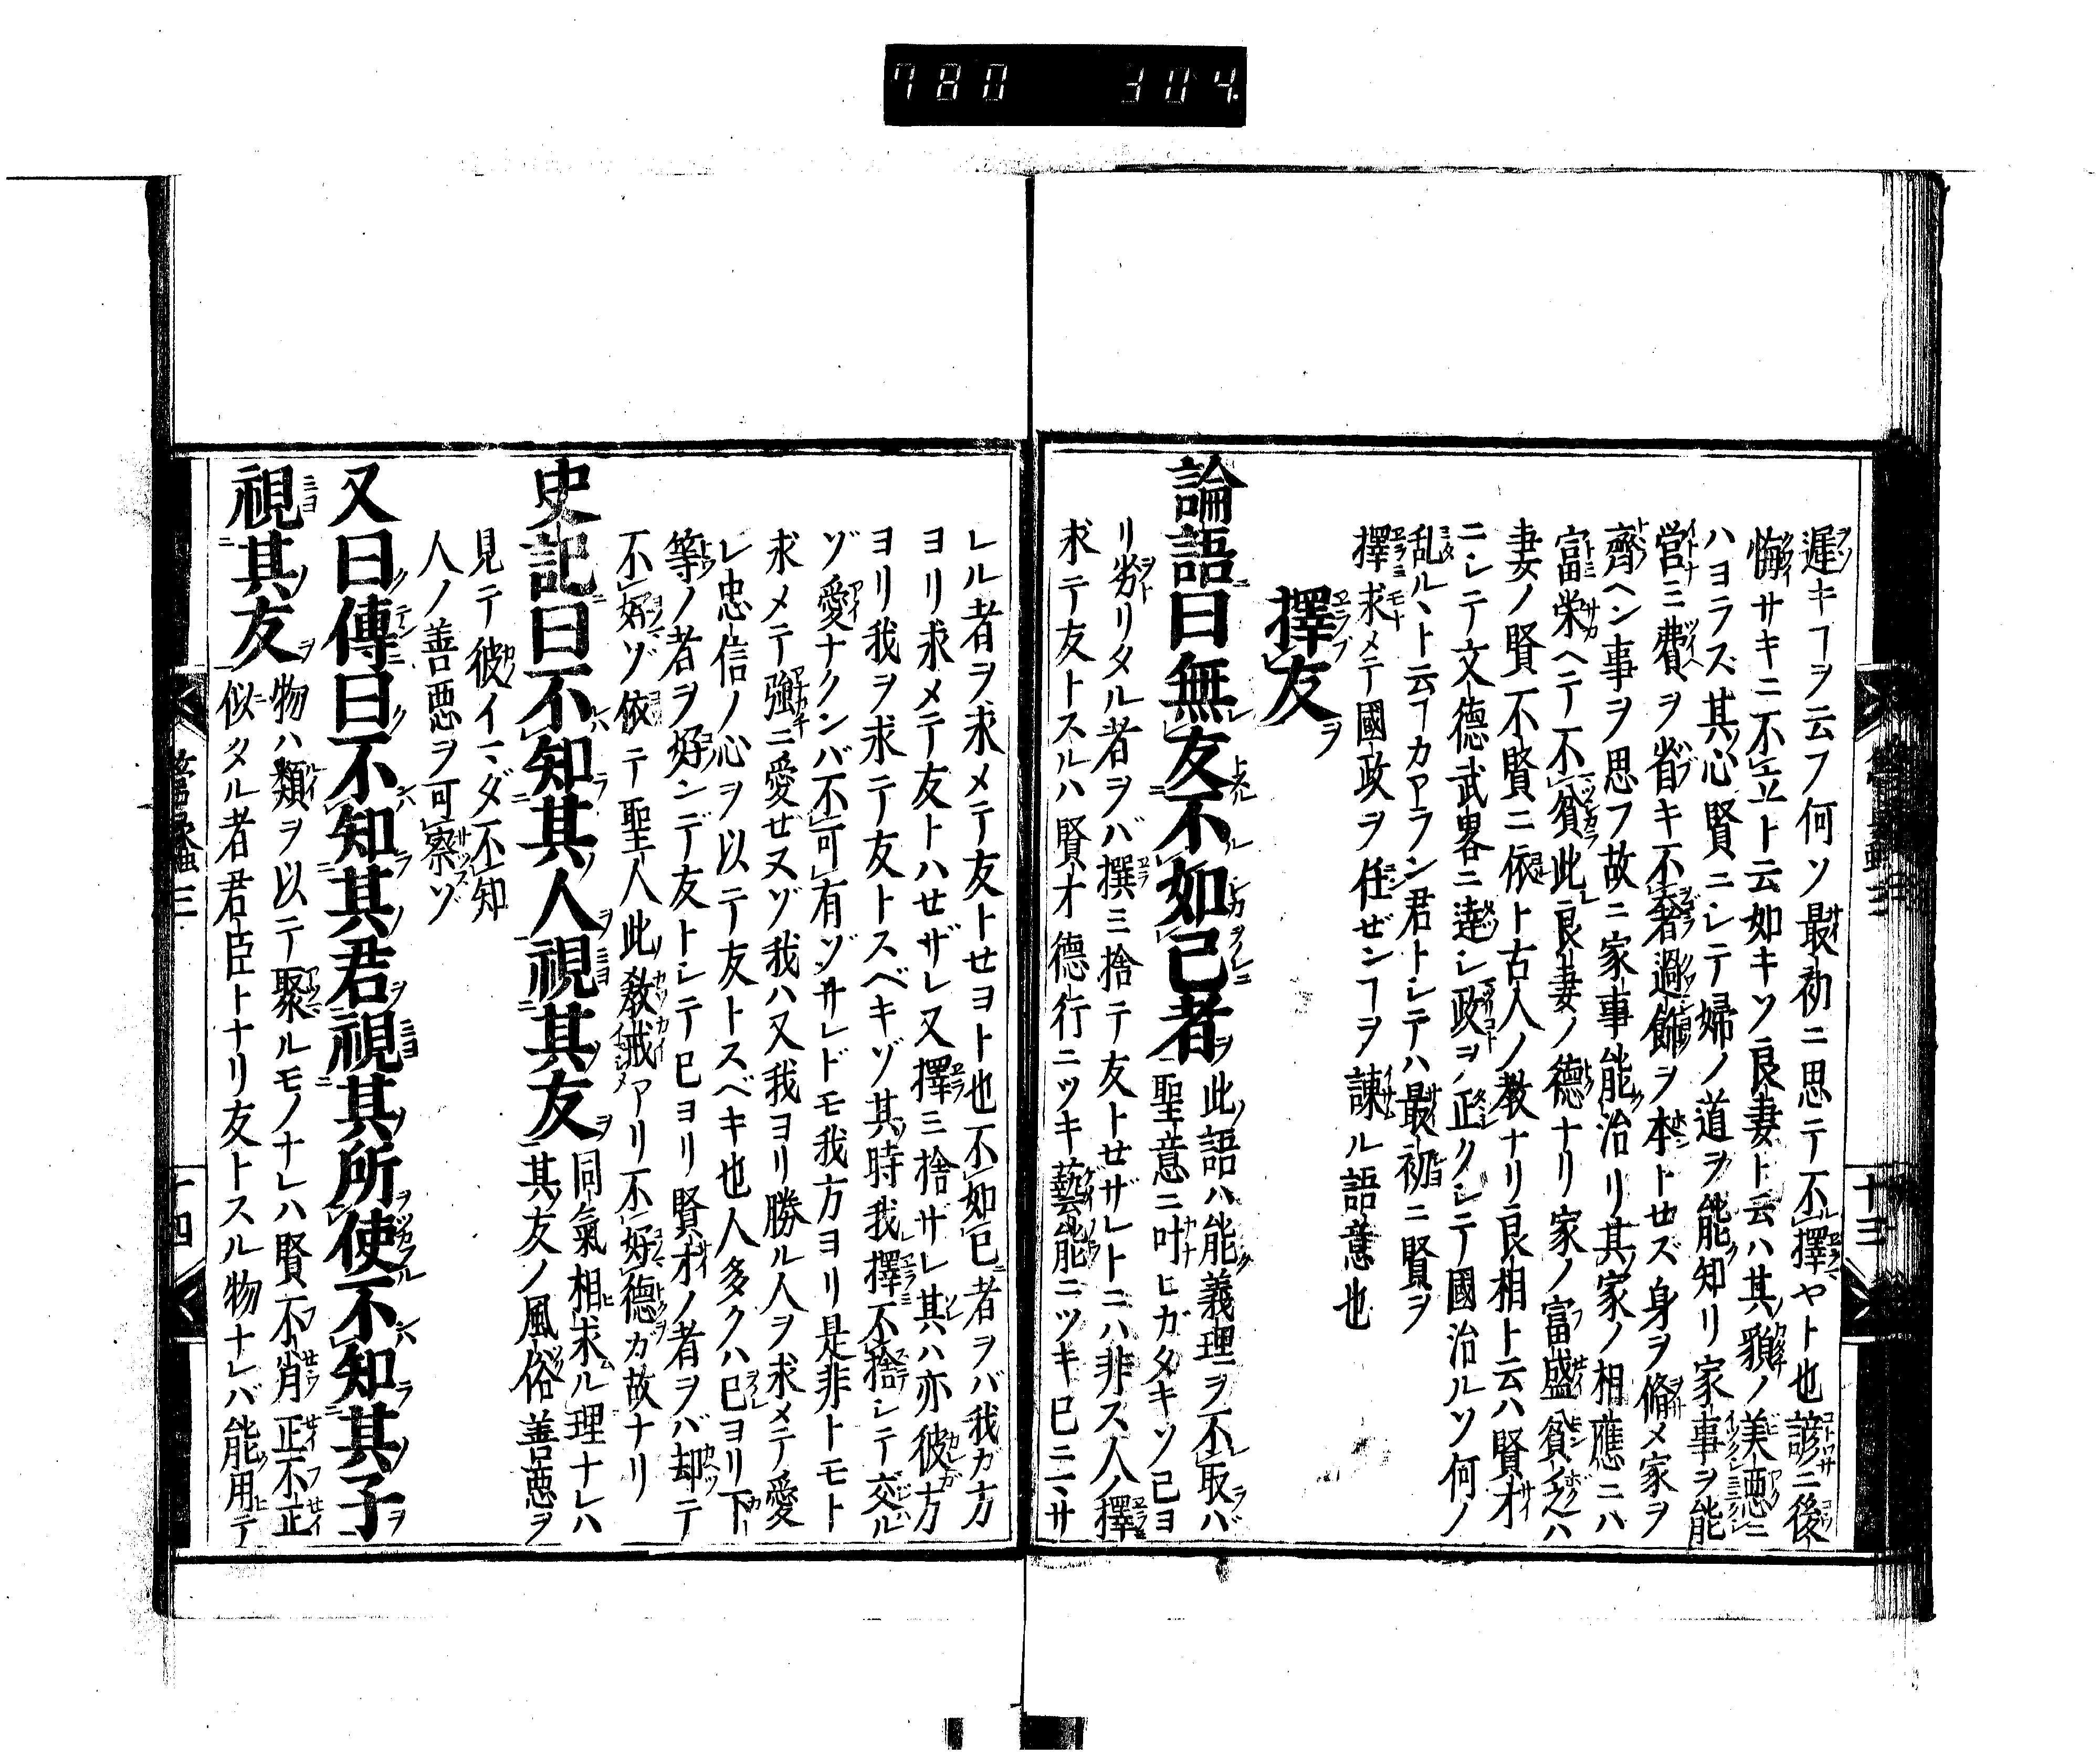 780 304.
遲キヿヲ云フ何ソ最初ニ思テ不擇ヤト也諺ニ後
悔サキニ不立ト云如キソ良妻ト云ハ其貌ノ美悪ニ
ハヨラズ其心賢ニシテ婦ノ道ヲ能知リ家事ヲ能
営ミ費ヲ省キ不奢過飾ヲ本トセズ身ヲ脩メ家ヲ
齊ヘン事ヲ思フ故ニ家事能治リ其家ノ相應ニハ
富栄ヘテ不貧此良妻ノ德ナリ家ノ富盛貧乏ハ
妻ノ賢不賢ニ依ト古人ノ教ナリ良相ト云ハ賢才
ニシテ文德武畧ニ達シ政ヲ正クシテ國治ルソ何ノ
乱ルヽト云ヿカアラン君トシテハ最初ニ賢ヲ
擇求メテ國政ヲ任ぜンヿヲ諌ル語意也
擇友ヲ
論語曰無友不如己者ヲ
此語ハ能義理ヲ不取バ
聖意ニ叶ヒガタキソ己ヨ
リ劣リタル者ヲバ撰ミ捨テ友トせザレトニハ非ス人ノ擇
求テ友トスルハ賢才德行ニツキ藝能ニツキ已ニヽサ
十三
レル者ヲ求メテ友トせヨト也不如己者ヲバ我カ方
ヨリ求メテ友トハせザレ又擇ミ捨ザレ其ハ亦彼方
ヨリ我ヲ求テ友トスベキゾ其時我擇不捨シテ交ル
ゾ愛ナクンバ不可有ゾサレドモ我方ヨリ是非トモト
求メテ強ニ愛せヌゾ我ハ又我ヨリ勝ル人ヲ求メテ愛
シ忠信ノ心ヲ以テ友トスベキ也人多クハ己ヨリ下
等ノ者ヲ好ンデ友トシテ已ヨリ賢才ノ者ヲバ却テ
不好ゾ依テ聖人此教戒アリ不好德ガ故ナリ
史記曰不知其人視其友ヲ
同氣相求ル理ナレハ
其友ノ風俗善悪ヲ
見テ彼イマダ不知
人ノ善悪ヲ可察ゾ
又曰傳曰不知其君視其所使不知其子ヲ
視其友ヲ
物ハ類ヲ以テ聚ルモノナレハ賢不肖正不正
似タル者君臣トナリ友トスル物ナレバ能用テ
十四